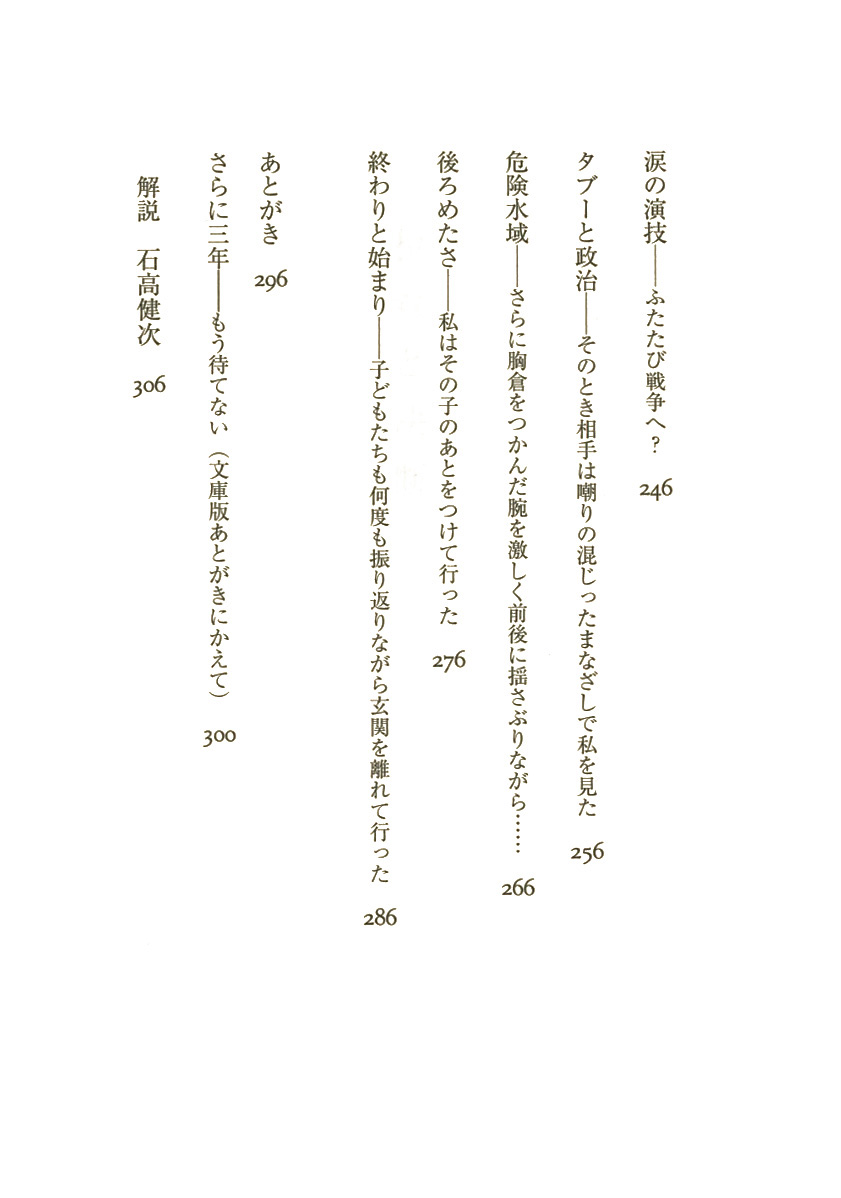 涙の演技——ふたたび戦争へ? 246
タブーと政治——そのとき相手は嘲りの混じったまなざしで私を見た 256
危険水域——さらに胸倉をつかんだ腕を激しく前後に揺さぶりながら…… 266
後ろめたさ——私はその子のあとをつけて行った 276
終わりと始まり——子どもたちも何度も振り返りながら玄関を離れて行った 286
あとがき 296
さらに三年——もう待てない(文庫版あとがきにかえて) 300
解説 石高健次 306